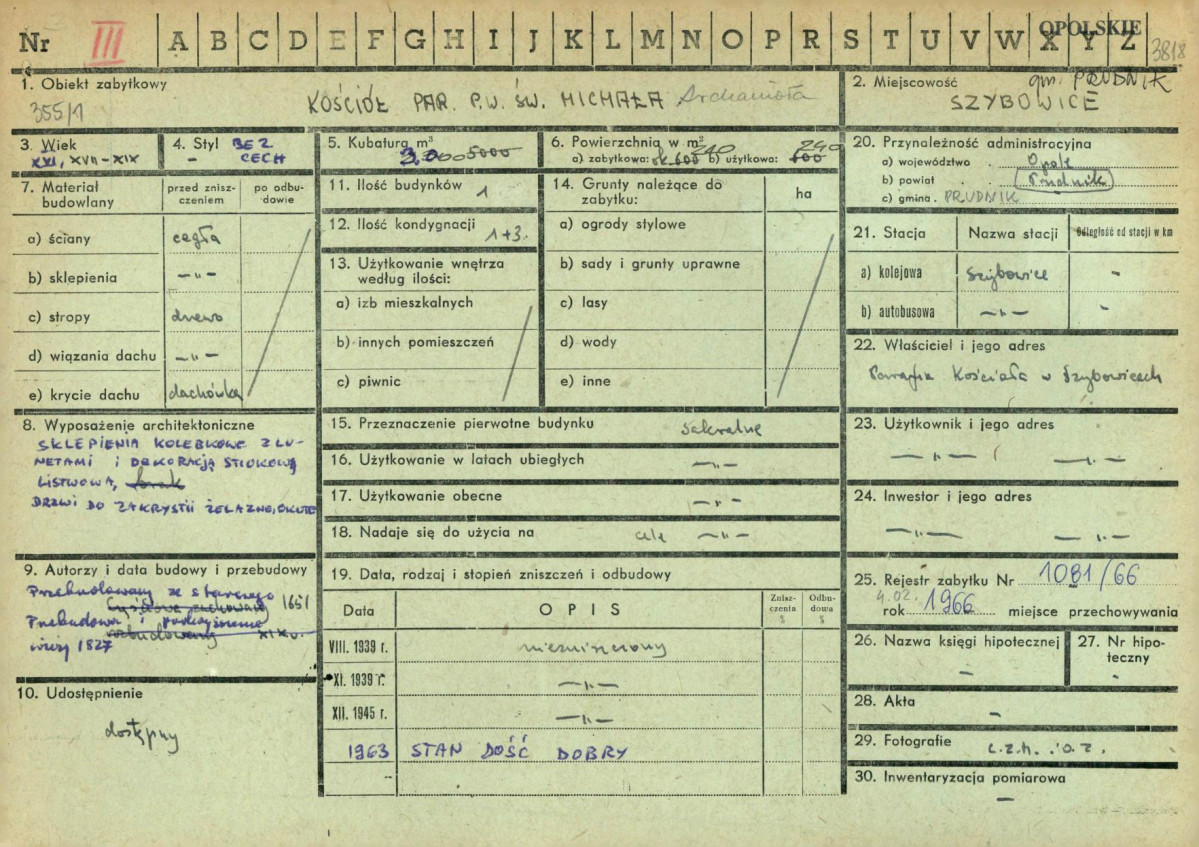 OPOLSKIE
Nr III A B C D E F G H I J K L M N O P R S T U V W X Y Z 3818
1. Obiekt zabytkowy
355/1 KOŚCIÓŁ PAR. P.W. ŚW. MICHAŁA Archanioła
2. Miejscowość gm. PRUDNIK
SZYBOWICE
3. Wiek
XVI, XVII-XIX
4. Styl BEZ
CECH
5. Kubatura m³
3.000 5000
6. Powierzchnia w m² 240 240
a) zabytkowa: ok. 600 b) użytkowa: 600
7. Materiał
budowlany
przed znisz-
czeniem
po odbu-
dowie
a) ściany cegła
b) sklepienia -"-
c) stropy drewno
d) wiązania dachu -"-
e) krycie dachu dachówka
8. Wyposażenie architektoniczne
SKLEPIENIA KOLEBKOWE Z LU-
NETAMI i DEKORACJĄ STIUKOWĄ
LISTWOWĄ, brak
DRZWI DO ZAKRYSTII ŻELAZNE, OKUTE
9. Autorzy i data budowy i przebudowy
Przebudowany ze starszego 1651
Przebudowa i podwyższenie
rozbudowany XIX w.
wieży 1827
10. Udostępnienie
dostępny
11. Ilość budynków 1
12. Ilość kondygnacji 1+3.
13. Użytkowanie wnętrza
według ilości:
a) izb mieszkalnych
b) innych pomieszczeń
c) piwnic
14. Grunty należące do
zabytku:
ha
a) ogrody stylowe
b) sady i grunty uprawne
c) lasy
d) wody
e) inne
15. Przeznaczenie pierwotne budynku sakralne
16. Użytkowanie w latach ubiegłych -"-
17. Użytkowanie obecne -"-
18. Nadaje się do użycia na cele -"-
19. Data, rodzaj i stopień zniszczeń i odbudowy
Data OPIS Znisz-
czenia
% Odbu-
dowa
%
VIII. 1939 r. niezniszczony
XI. 1939 r. -"-
XII. 1945 r. -"-
1963 STAN DOŚĆ DOBRY
20. Przynależność administracyjna
a) województwo . Opole
b) powiat . . Prudnik
c) gmina . PRUDNIK
21. Stacja Nazwa stacji Odległość od stacji w km
a) kolejowa Szybowice -
b) autobusowa -"- -
22. Właściciel i jego adres
Parafia Kościoła w Szybowicach
23. Użytkownik i jego adres
-"- -"-
24. Inwestor i jego adres
-"- -"-
25. Rejestr zabytku Nr 1081/66
4.02.
rok 1966 miejsce przechowywania
26. Nazwa księgi hipotecznej
-
27. Nr hipo-
teczny
-
28. Akta
-
29. Fotografie
30. Inwentaryzacja pomiarowa
-